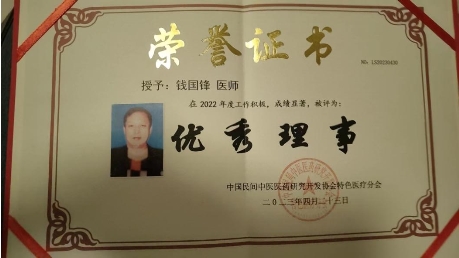 荣誉证书
授予：钱国锋 医师
在 2022 年度工作积极，成绩显著，被评为：
优秀理事
中国民间中医医药研究开发协会特色医疗分会
二〇二三年四月二十三日